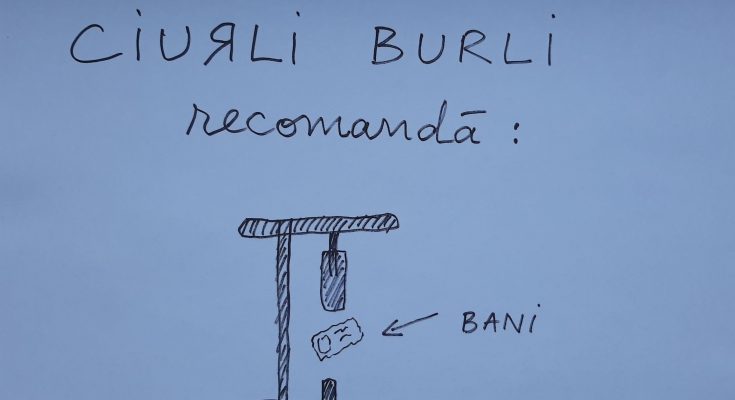 CiUЯLi BURLi
recomandă :
BANi